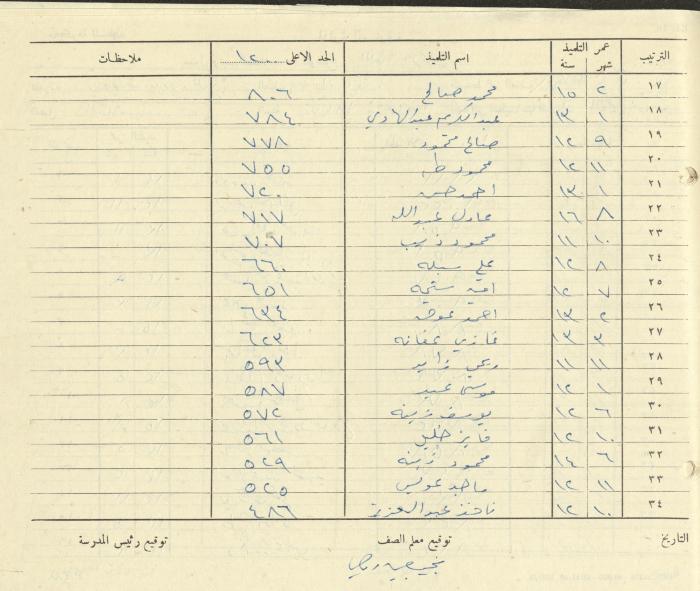 الترتيب عمر التلميذ شهر سنة اسم التلميذ الحد الاعلى ١٢٠٠ ملاحظات
١٧ ٢ ١٥ محمد صالح ٨٠٦
١٨ ١ ١٣ عبد الكريم عبد الهادي ٧٨٤
١٩ ٩ ١٢ صالح محمود ٧٧٨
٢٠ ١١ ١٢ محمود طه ٧٥٥
٢١ ١ ١٣ احمد حسن ٧٢٠
٢٢ ٨ ١٦ عادل عبد الله ٧١٧
٢٣ ١٠ ١١ محمود ٧٠٧
٢٤ ٨ ١٢ علي ٦٦٠
٢٥ ٧ ١٢ ٦٥١
٢٦ ٢ ١٣ احمد عوض ٦٣٤
٢٧ ٣ ١٣ غازي ٦٢٣
٢٨ ١١ ١١ ٥٩٣
٢٩ ١ ١٢ موسى عبيد ٥٨٧
٣٠ ٦ ١٢ يوسف زينه ٥٧٢
٣١ ١٠ ١٢ فايز خليل ٥٦١
٣٢ ٦ ١٤ محمود زينه ٥٢٩
٣٣ ١١ ١٢ ماجد عويس ٥٢٥
٣٤ ١٠ ١٢ نافذ عبد العزيز ٤٨٦
التاريخ توقيع معلم الصف توقيع رئيس المدرسة